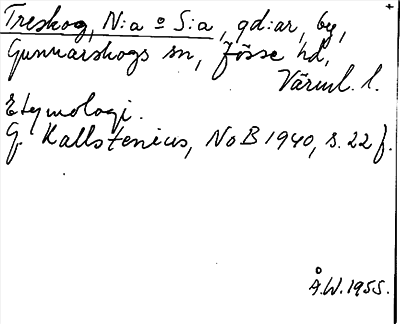 Treskog, N:a o S:a, gd:ar, by,
Gunnarskogs sn, Jösse hd,
Värml. l.
Etymologi.
G. Kallstenius, NoB 1940, s. 22 f.
Å.W. 1955.